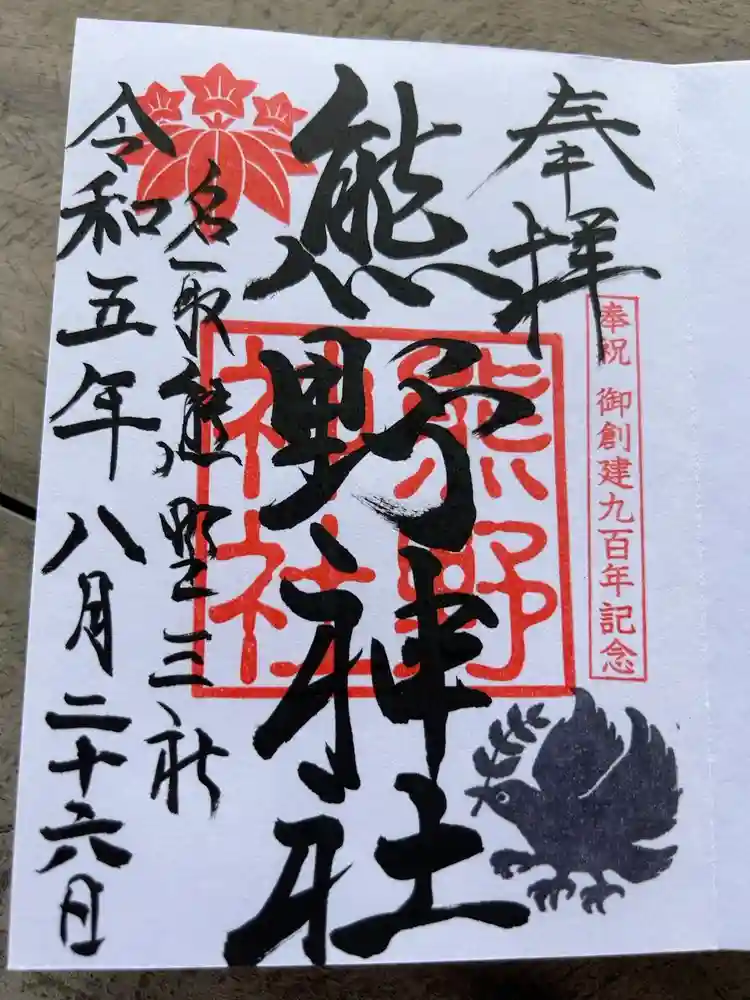 奉拝
奉祝 御創建九百年記念
熊野神社
熊野
神社
名取熊野三社
令和五年八月二十六日